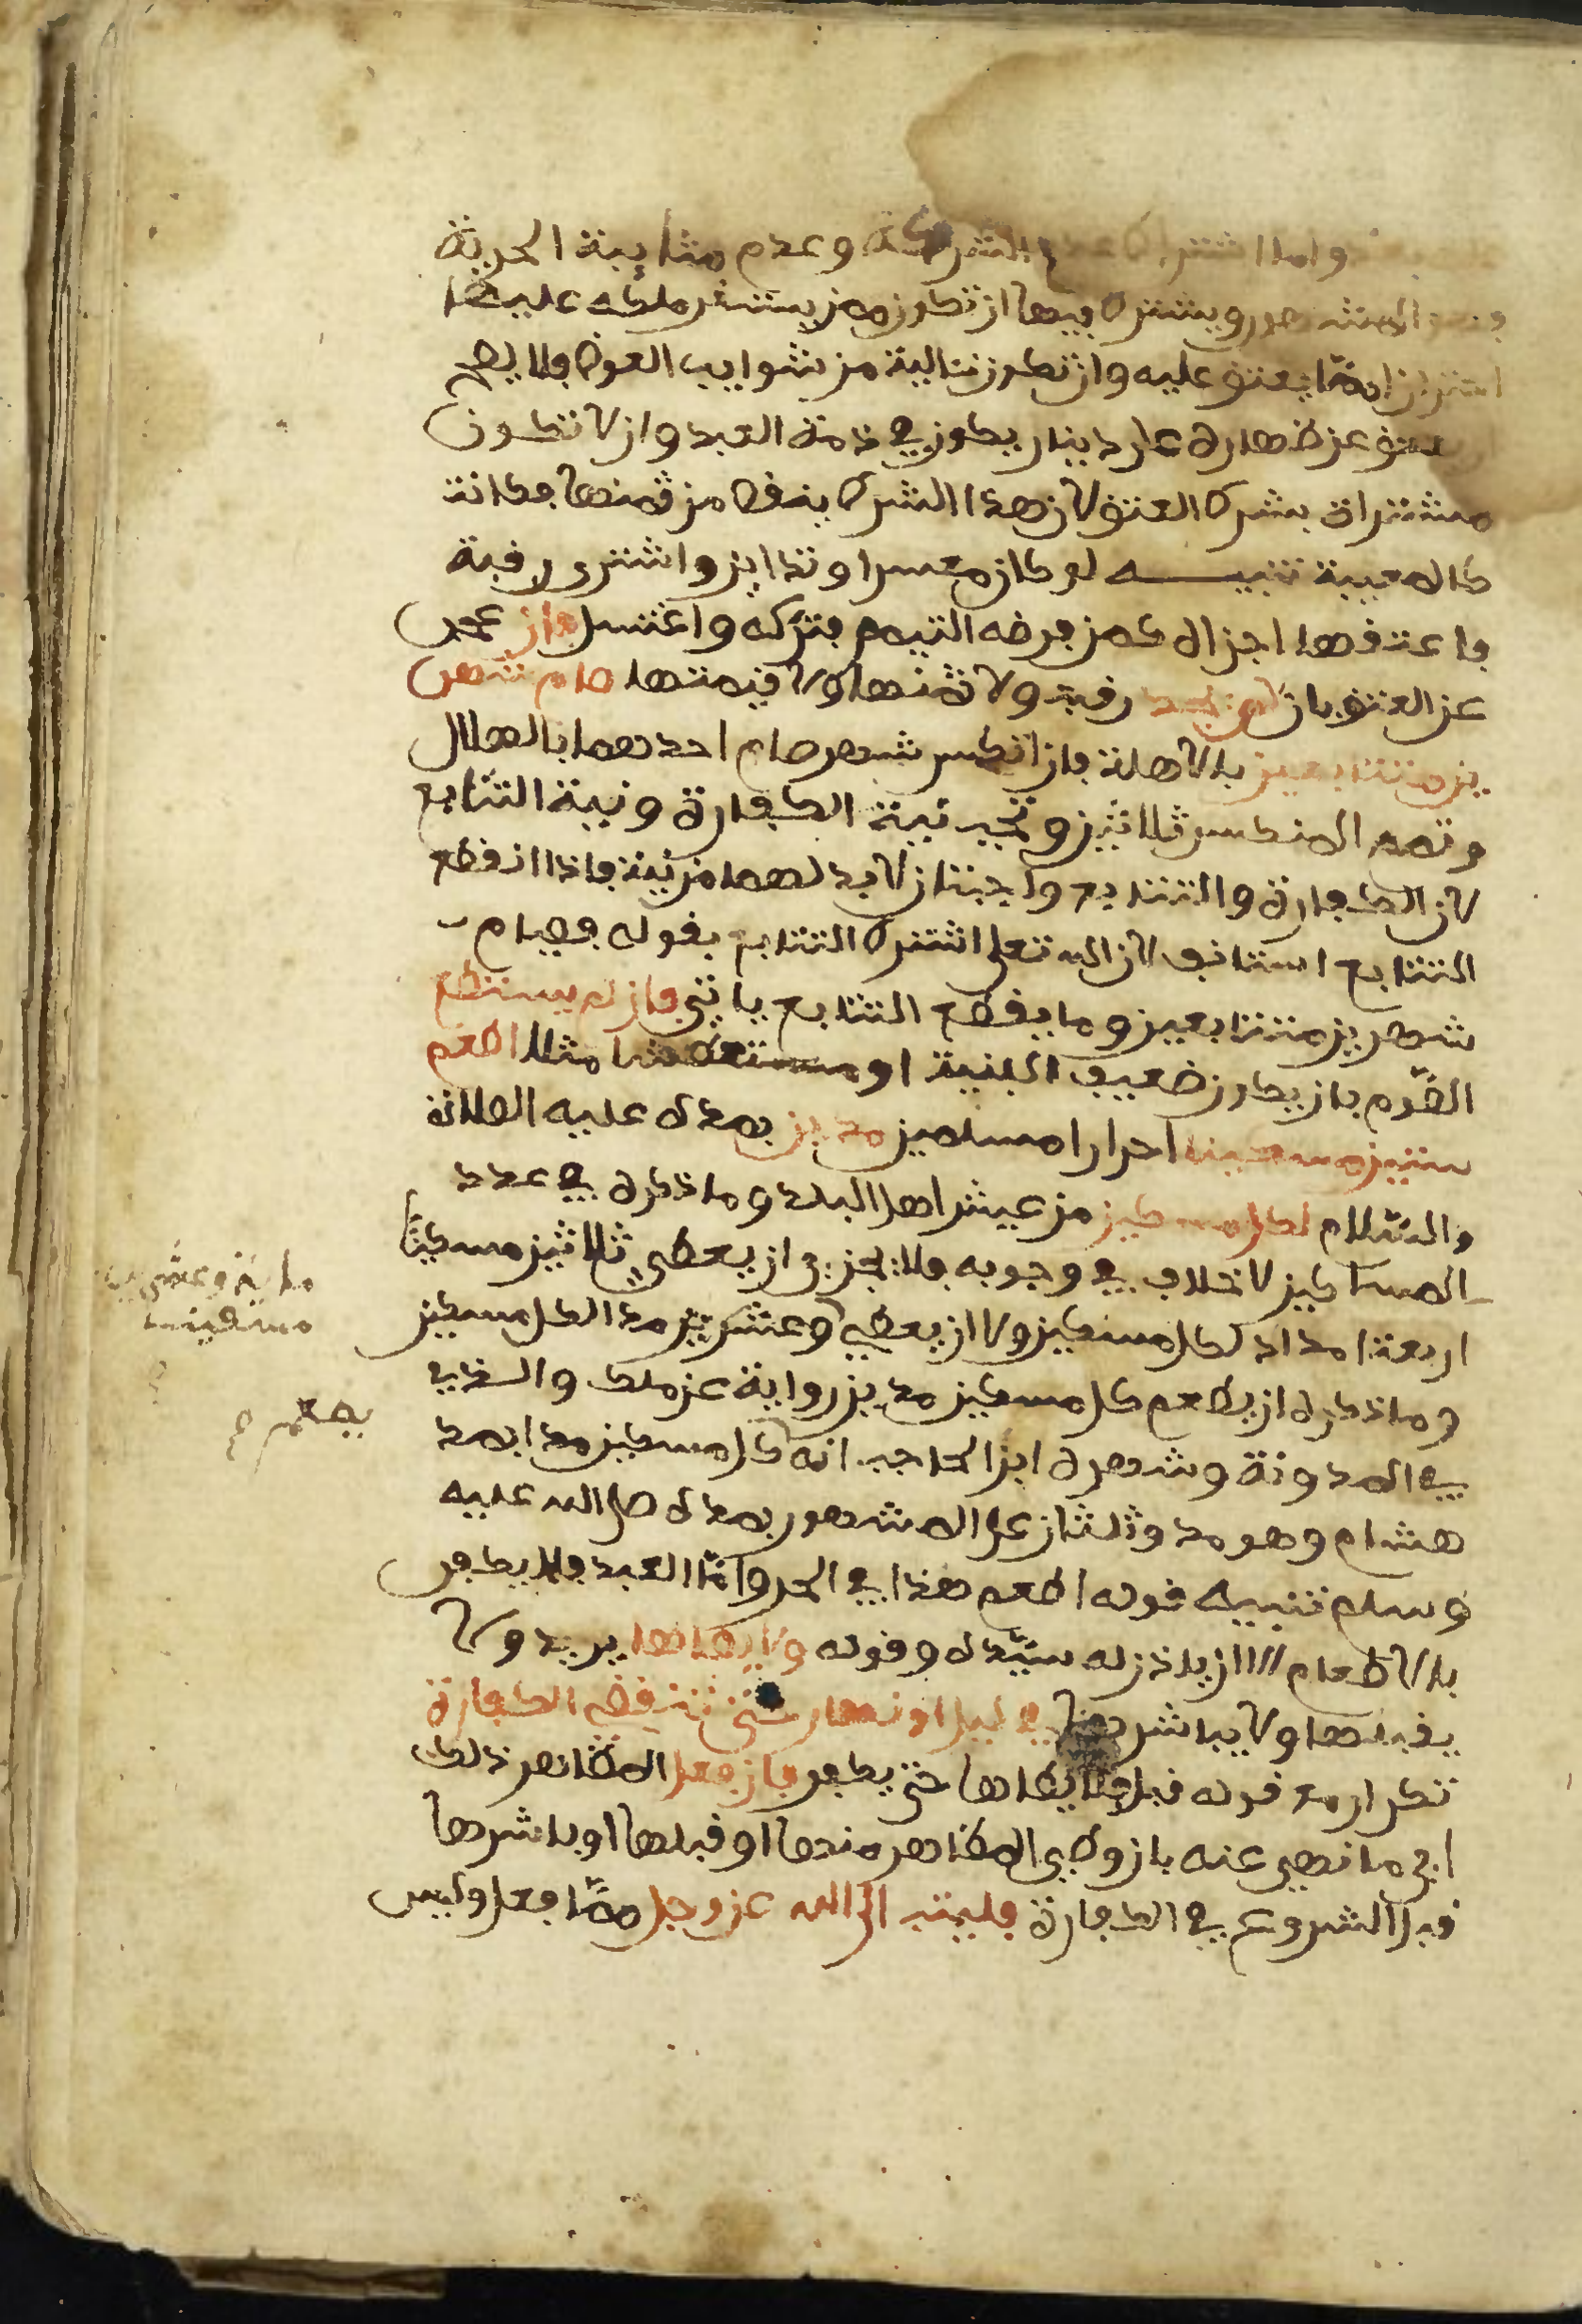 واما اشتراط عدم الشركة وعدم مثايبة الحرية
المشهور ويشترط فيها ان تكون ممن يستقر ملكه عليها
احترازا مما يعتق عليه وان تكون سالمة من شوايب العوض فلا يصح
يعتق عن ظهاره على دينار يكون في ذمة العبد وان لا تكون
مشتراة بشرط العتق لان هذا الشرط ينقص من ثمنها فكانت
كالمعيبة تنبيه لو كان معسرا وتداين واشترى رقبة
فاعتقها اجزاه كمن فرضه التيمم فتركه واغتسل فان عجز
عن العتق بان لم يجد رقبة ولا ثمنها ولا قيمتها صام شهر
ين متتابعين بالاهلة فان انكسر شهر صام احدهما بالهلال
وتمم المنكسر ثلاثين وتجب نية الكفارة ونية التتابع
لان الكفارة والتتابع واجبتان لا بد لهما من نية فاذا انقطع
التتابع استانف لان الله تعلى اشترط التتابع بقوله فصيام
شهرين متتابعين وما يقطع التتابع ياتي فان لم يستطع
الصوم بان يكون ضعيف البنية او متعطشا مثلا اطعم
ستين مسكينا احرارا مسلمين مدين بمده عليه الصلاة
والسلام لكل مسكين من عيش اهل البلد وما ذكره في عدد
المساكين لا خلاف في وجوبه فلا يجزي ان يعطي ثلاثين مسكينا
اربعة امداد لكل مسكين ولا ان يعطي وعشرين مدا لكل مسكين
وما ذكره ان يطعم كل مسكين مدين رواية عن ملك والذي
في المدونة وشهره ابن الحاجب انه كل مسكين مدا بمد
هشام وهو مد وثلثان على المشهور بمده صلى الله عليه
وسلم تنبيه قوله اطعم هذا في الحر واما العبد فلا يكفر
بالاطعام الا ان ياذن له سيده وقوله ولا يطاها يريد ولا
يقبلها ولا يباشرها في ليل او نهار حتى تنقضي الكفارة
تكرار مع قوله قبل فلا يطاها حتى يكفر فان فعل المظاهر ذلك
اي ما نهي عنه بان وطي المظاهر منها او قبلها او باشرها
قبل الشروع في الكفارة فليتب الى الله عز وجل مما فعل وليس
ماية وعشرين
مسكينا